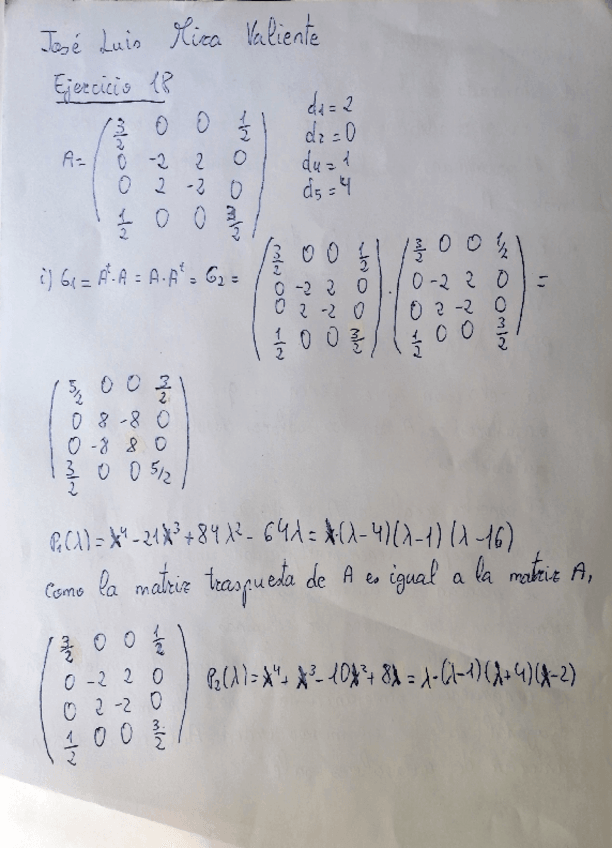 José Luis Mira Valiente
Ejercicio 18
A = ( 3/2 0 0 1/2 d1 = 2
0 -2 2 0 d2 = 0
0 2 -2 0 d4 = 1
1/2 0 0 3/2 ) d5 = 4
i) G1 = A^t · A = A · A^t = G2 = ( 3/2 0 0 1/2 ) · ( 3/2 0 0 1/2 ) =
0 -2 2 0 0 -2 2 0
0 2 -2 0 0 2 -2 0
1/2 0 0 3/2 1/2 0 0 3/2
( 5/2 0 0 3/2 )
0 8 -8 0
0 -8 8 0
3/2 0 0 5/2
P1(λ) = λ⁴ - 21λ³ + 84λ² - 64λ = λ·(λ-4)(λ-1)(λ-16)
Como la matriz traspuesta de A es igual a la matriz A,
( 3/2 0 0 1/2 )
0 -2 2 0 P2(λ) = λ⁴ + λ³ - 10λ² + 8λ = λ·(λ-1)(λ+4)(λ-2)
0 2 -2 0
1/2 0 0 3/2